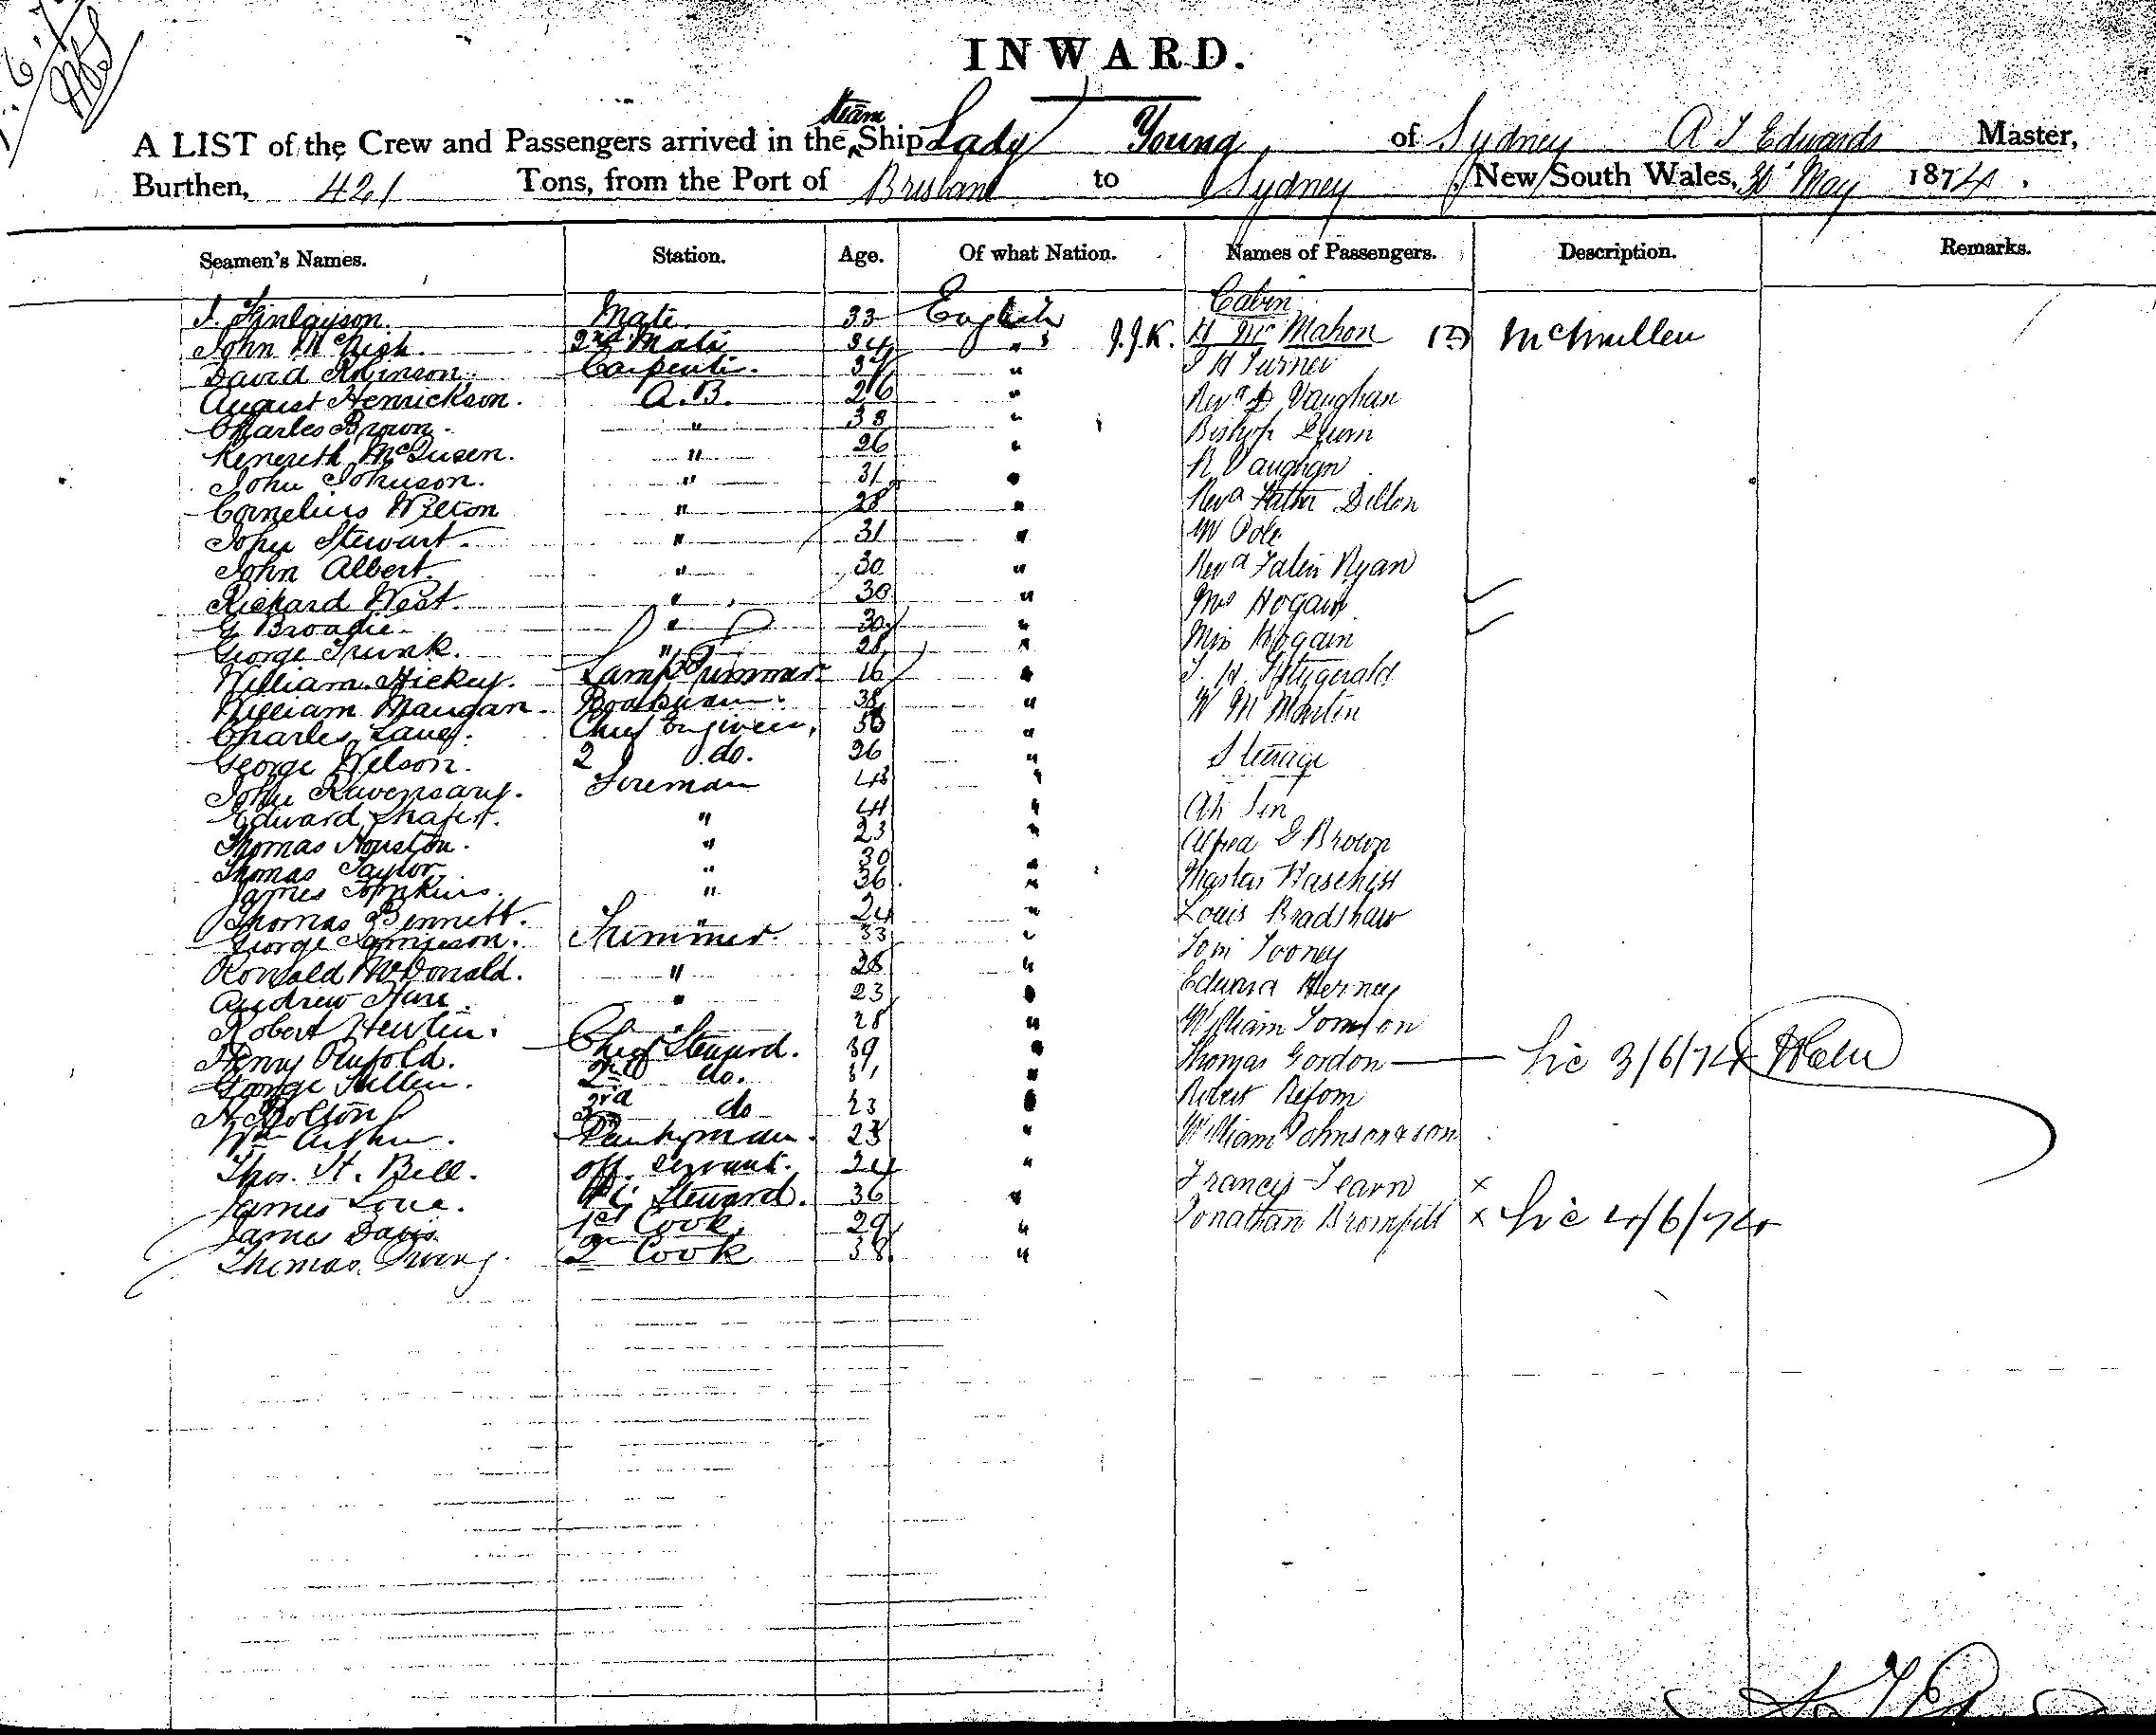 INWARD.
A LIST of the Crew and Passengers arrived in the Steam Ship Lady Young of Sydney A T Edwards Master,
Burthen, 421 Tons, from the Port of Brisbane to Sydney New South Wales, 30 May 1874.
Seamen's Names. Station. Age. Of what Nation. Names of Passengers. Description. Remarks.
Cabin
J. Finlayson. Mate. 33 English
John McNish. 2nd Mate 34 " J.J.K. H McMahon (?) McMullen
David Robinson. Carpenter. " J H Turner
August Henrickson. A.B. 26 " Revd D Vaughan
Charles Brown. " 33 " Bishop Quinn
Kenneth McQueen. " 26 " R Vaughan
John Johnson. " 31 " Revd Father Dillon
Cornelius Wilson " 28 " W Pole
John Stewart. " 31 "
John Albert. " 30 " Revd Father Ryan
Richard West. " 30 " Mrs Hogain
G. Broadie. " 30 " Miss Hogain
George Trunk. " 28 "
William Hickey. Lamp Trimmer 16 " J. H. Fitzgerald
William Mangan. 38 " W M Martin
Charles Lane. Chief Engineer, "
George Wilson. 2 do. 26 " Steerage
John Ravensary. Fireman "
Edward Shafer. " 44 " Ah Sin
Thomas Houston. " 23 " Alfred G Brown
Thomas Taylor. " 30 "
James Tomkins. " 36 " Master
Thomas Bennett. " 24 " Louis Bradshaw
George Jamieson. Trimmer 33 " Tom Tooney
Ronald McDonald. " 28 " Edward
Andrew Hare. " 23 "
Robert Hewlin. " 28 " William
Henry Olufold. Chief Steward. 39 " Thomas Gordon Lic 3/6/74
George Fuller. 2nd do. " Robert
H. Bolton 3rd do 23 "
Wm Arthur. Pantryman. 23 " William Johnson & son
Thos. H. Bell. off. servant. 24 "
James Love. Steward. 36 " Francis Fearn x
James Davis 1st Cook 29 " Jonathan x Lic 4/6/74
Thomas Irving. 2 Cook 38 "